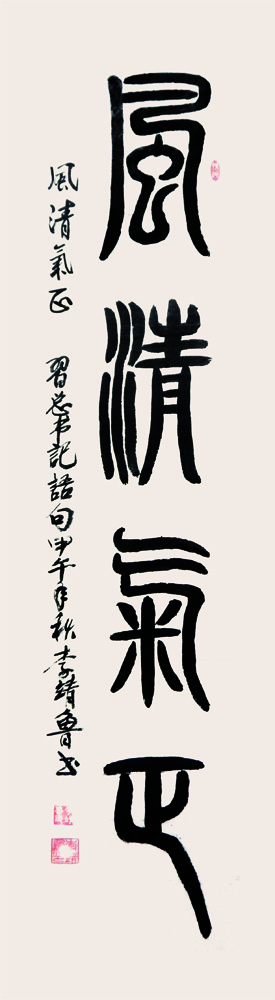 風清氣正
風清氣正 習总书記語句甲午年秋李靖魯书